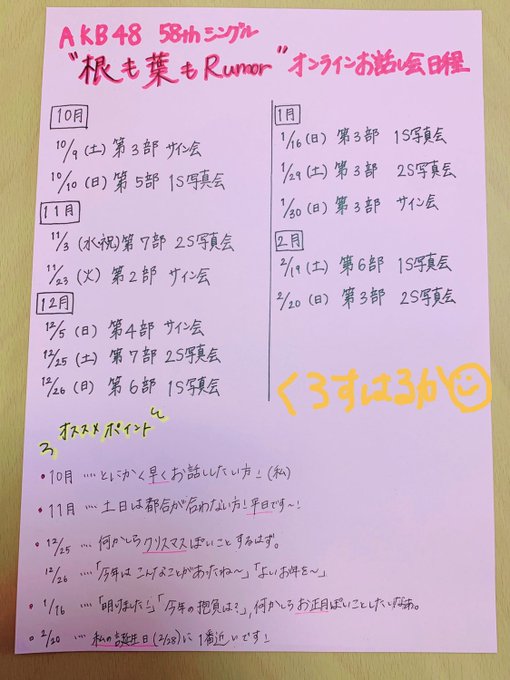 AKB48 58thシングル
"根も葉もRumor"オンラインお話し会日程
10月
10/9(土)第3部 サイン会
10/10(日)第5部 1S写真会
11月
11/3(水・祝)第7部 2S写真会
11/23(火)第2部 サイン会
12月
12/5(日)第4部 サイン会
12/25(土)第7部 2S写真会
12/26(日)第6部 1S写真会
1月
1/16(日)第3部 1S写真会
1/29(土)第3部 2S写真会
1/30(日)第3部 サイン会
2月
2/19(土)第6部 1S写真会
2/20(日)第3部 2S写真会
くろすはるか
オススメポイント
・10月 …. とにかく早くお話ししたい方!(私)
・11月 …. 土日は都合が合わない方!平日です〜!
・12/25 … 何かしらクリスマスぽいことするはず。
12/26 …「今年はこんなことがあったね〜」「よいお年を〜」
・1/16 …「明けました!」「今年の抱負は?」何かしらお正月ぽいことしたいなぁ。
・2/20 … 私の誕生日(2/28)に1番近いです!